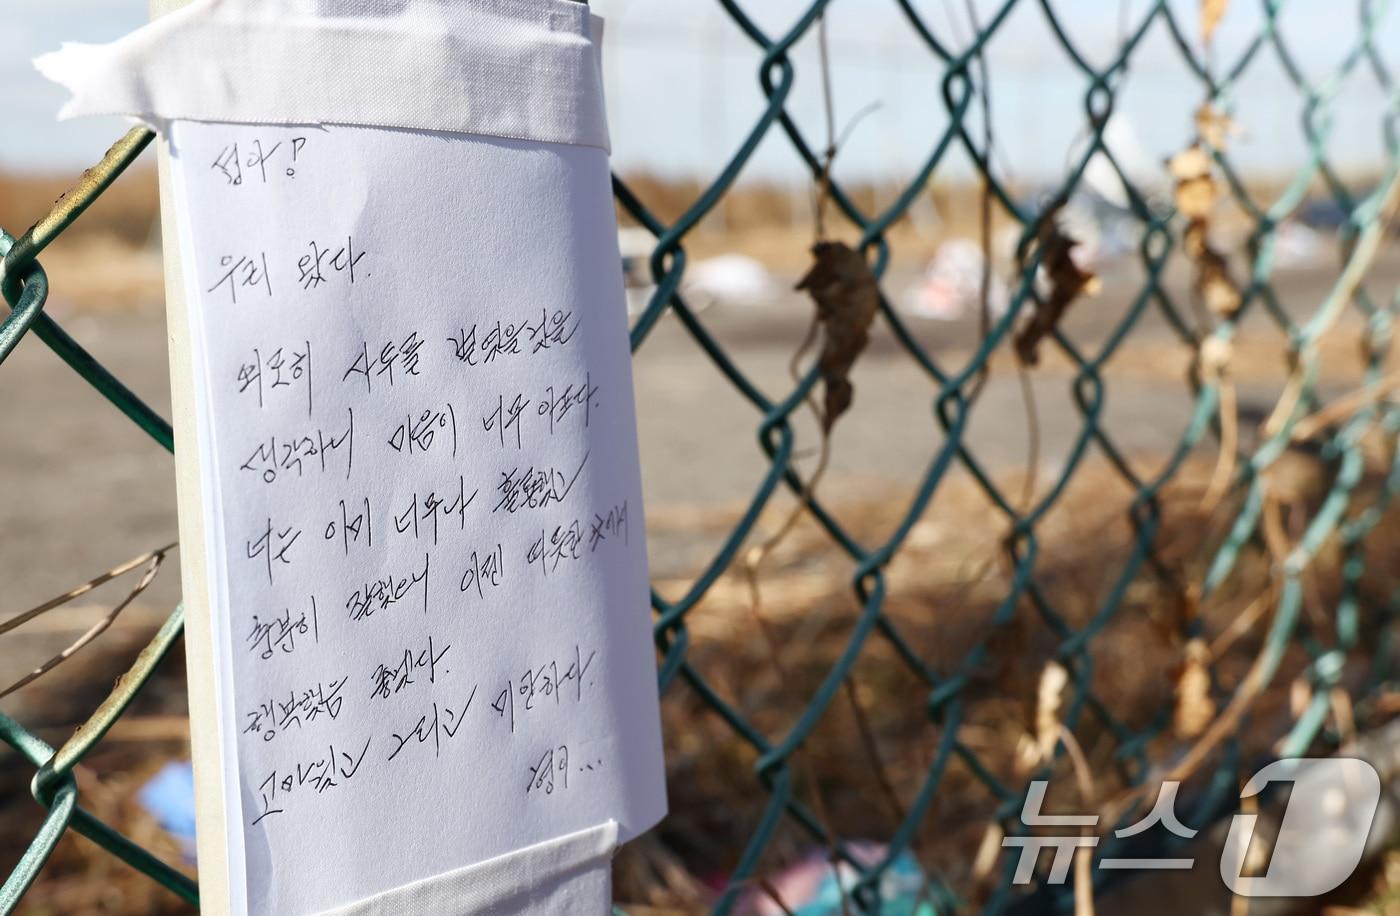 섭아!
우리 왔다.
외로히 사투를 벌였을 것을
생각하니 마음이 너무 아프다.
너는 이미 너무나 훌륭했고
충분히 잘했으니 이젠 따뜻한 곳에서
행복했음 좋겠다.
고마웠고 그리고 미안하다.
형이...
뉴스1